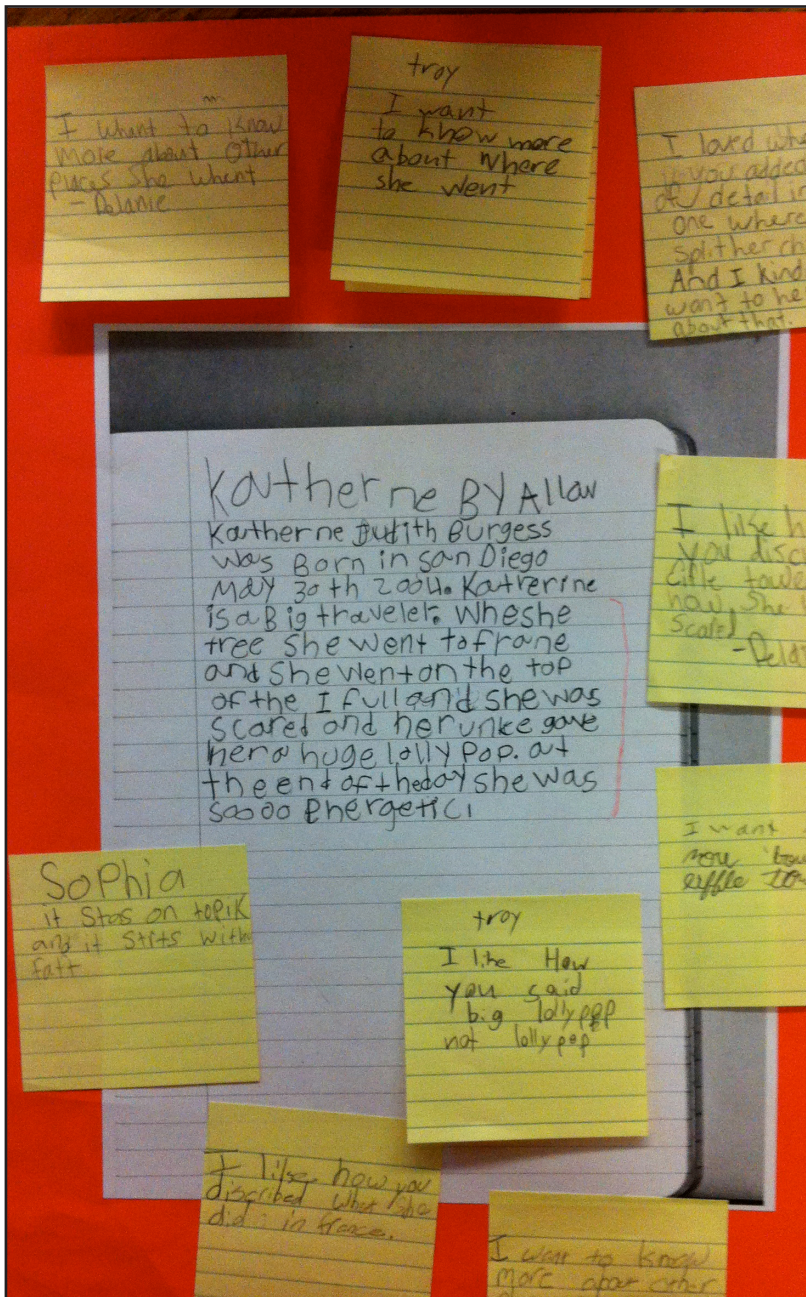 I whant to know
more about Other
places She whent
- Delanie
troy
I want
to know more
about where
she went
I loved whe
you added
of detail in
one where
split her ch
And I kind
want to he
about that.
Katherne BY Allan
Katherne Judith Burgess
was Born in san Diego
MAY 30th 2004. Katrerine
is a Big traveler. Whe she
tree She went to frane
and she went on the top
of the I full and she was
scared and her unke gave
her a huge lolly Pop. at
the end of the day she was
soooo Energetic!
I like h
you discr
eifle towe
how she
scared
- Delan
I want
more 'bou
eiffle tow
SoPhia
it Stas on toPiK
and it stits with
fatt
troy
I like How
you said
big lollypop
not lollypop
I like how you
discribed what she
did in france.
I want to know
more about other